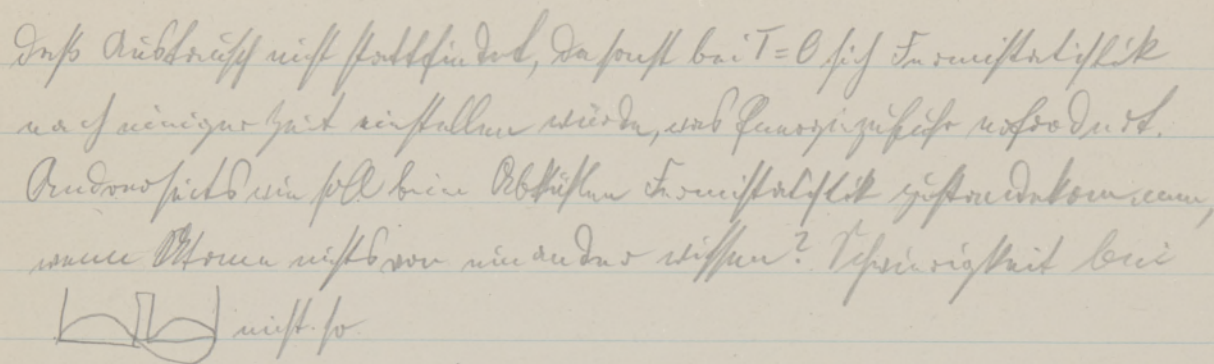 daß Austausch nicht stattfindet, da sonst bei T=0 sich Fermistatistik
nach einiger Zeit einstellen würde, was Energiezufuhr erfordert.
Andererseits wie soll beim Abkühlen Fermistatistik zustandekommen,
wenn Atome nichts von einander wissen? Schwierigkeit bei
nicht so